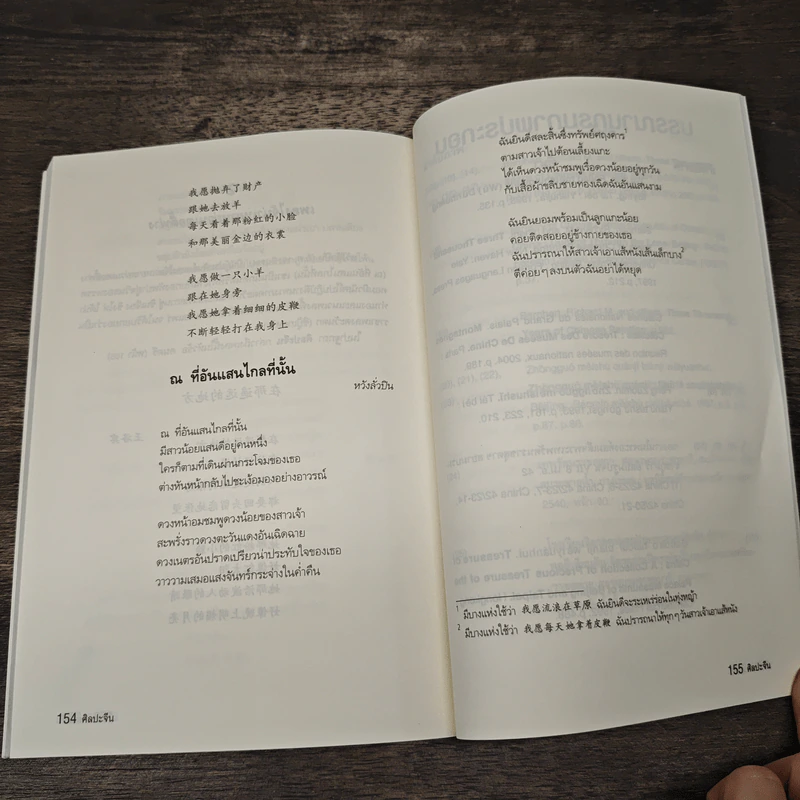 我愿抛弃了财产
跟她去放羊
每天看着那粉红的小脸
和那美丽金边的衣裳
我愿做一只小羊
跟在她身旁
我愿她拿着细细的皮鞭
不断轻轻打在我身上
ณ ที่อันแสนไกลที่นั้น
หวังลั่วปิน
ณ ที่อันแสนไกลที่นั้น
มีสาวน้อยแสนดีอยู่คนหนึ่ง
ใครก็ตามที่เดินผ่านกระโจมของเธอ
ต่างหันหน้ากลับไปชะเง้อมองอย่างอาวรณ์
ดวงหน้าอมชมพูดวงน้อยของสาวเจ้า
สะพรั่งราวดวงตะวันแดงอันเฉิดฉาย
ดวงเนตรอันปราดเปรียวน่าประทับใจของเธอ
วาววามเสมอแสงจันทร์กระจ่างในค่ำคืน
154 ศิลปะจีน
ฉันยินดีสละสิ้นซึ่งทรัพย์ศฤงคาร¹
ตามสาวเจ้าไปต้อนเลี้ยงแกะ
ได้เห็นดวงหน้าชมพูเรื่อดวงน้อยอยู่ทุกวัน
กับเสื้อผ้าขลิบชายทองเฉิดฉันอันแสนงาม
ฉันยินยอมพร้อมเป็นลูกแกะน้อย
คอยติดสอยอยู่ข้างกายของเธอ
ฉันปรารถนาให้สาวเจ้าเอาแส้หนังเส้นเล็กบาง²
ตีค่อยๆ ลงบนตัวฉันอย่าได้หยุด
¹ มีบางแห่งใช้ว่า 我愿流浪在草原 ฉันยินดีจะระเหเร่ร่อนในทุ่งหญ้า
² มีบางแห่งใช้ว่า 我愿每天她拿着皮鞭 ฉันปรารถนาให้ทุกๆ วันสาวเจ้าเอาแส้หนัง
155 ศิลปะจีน